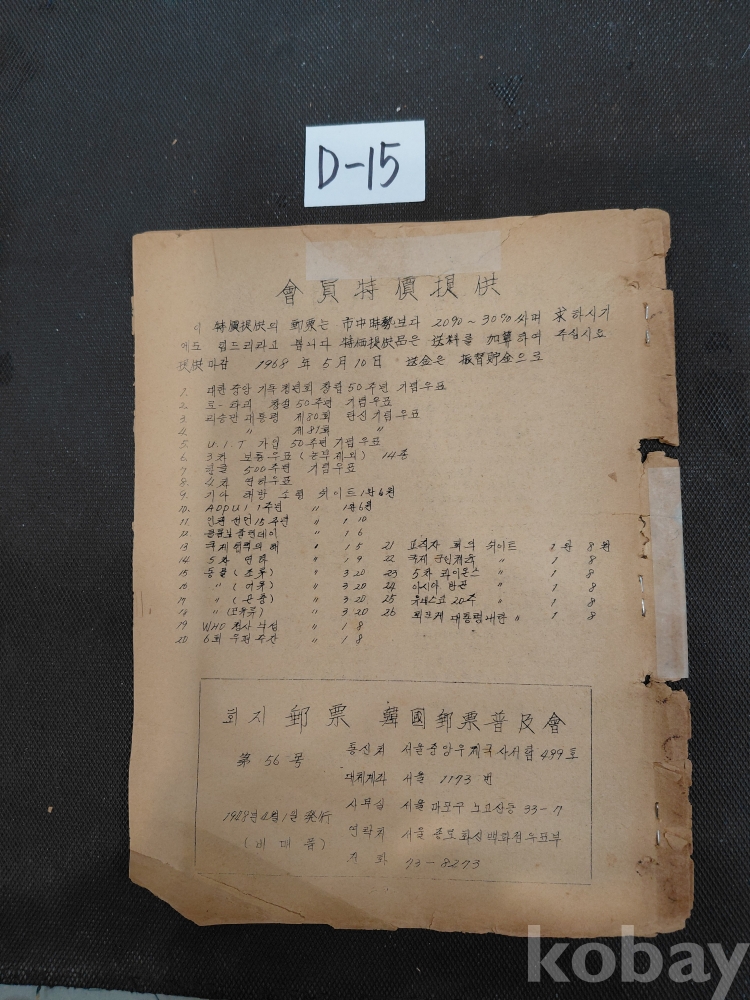 D-15
會員特價提供
이 特價提供의 郵票는 市中時勢보다 20%~30% 싸며 求하시기
에도 힘드리라고 봅니다 特価提供品은 送料를 加算하여 주십시요
提供마감 1968 年 5月 10日 送金은 振替貯金으로
1. 대한 중앙 기독 청년회 창립 50주년 기념우표
2. 로-타리 창립 50주년 기념우표
3. 리승만 대통령 제80회 탄신 기념우표
4. 〃 제81회 〃
5. U.I.T 가입 50주년 기념우표
6. 3차 보통우표 (농부제외) 14종
7. 한글 500주년 기념우표
8. 4차 연하우표
9. 기사 해방 소형 쉬이트 1매 6원
10. AOPU 1주년 〃 1매 6원
11. 인권 선언 15주년 〃 1 10
12. 〃 1 6
13 국제 협력의 해 〃 1 5
14 5차 연하 〃 1 9
15 동물 (조류) 〃 3 20
16 〃 (어류) 〃 3 20
17 〃 (곤충) 〃 3 20
18 〃 (포유류) 〃 3 20
19 WHO 청사 낙성 〃 1 8
20 6회 우편주간 〃 1 8
21 교직자 회의 쉬이트 1 원 8 원
22 국제 관광 〃 1 8
23 5차 라이온스 〃 1 8
24 아시아 반공 〃 1 8
25 유네스코 20주 〃 1 8
26 뤼브케 대통령 내한 〃 1 8
회지 郵票 韓國郵票普及會
第 56 号
1968年 4月 1日 発行
(비매품)
통신처 서울중앙우체국 사서함 499호
대체계좌 서울 1173 번
사무실 서울 마포구 노고산동 33-7
연락처 서울 종로 화신백화점 우표부
전화 73-8273
kobay